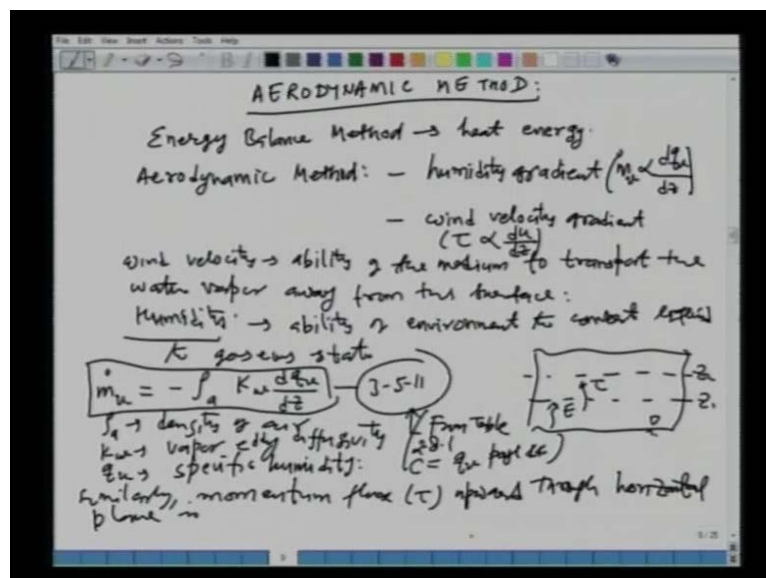 File Edit View Insert Actions Tools Help
AERODYNAMIC METHOD:
Energy Balance Method → heat energy.
Aerodynamic Method: – humidity gradient (ṁv ∝ dqv/dz)
– wind velocity gradient
(τ ∝ du/dz)
wind velocity → ability of the medium to transport the
water vapor away from the surface:
Humidity → ability of environment to convert liquid
to gaseous state
ṁv = - ρa Kw dqv/dz — 3-5-11
Z2
Z1
E τ
ρa → density of air
From Table
Kw → vapor eddy diffusivity
2.8.1
qv → specific humidity:
C = qv page 45)
Similarly, momentum flux (τ) upward through horizontal
plane